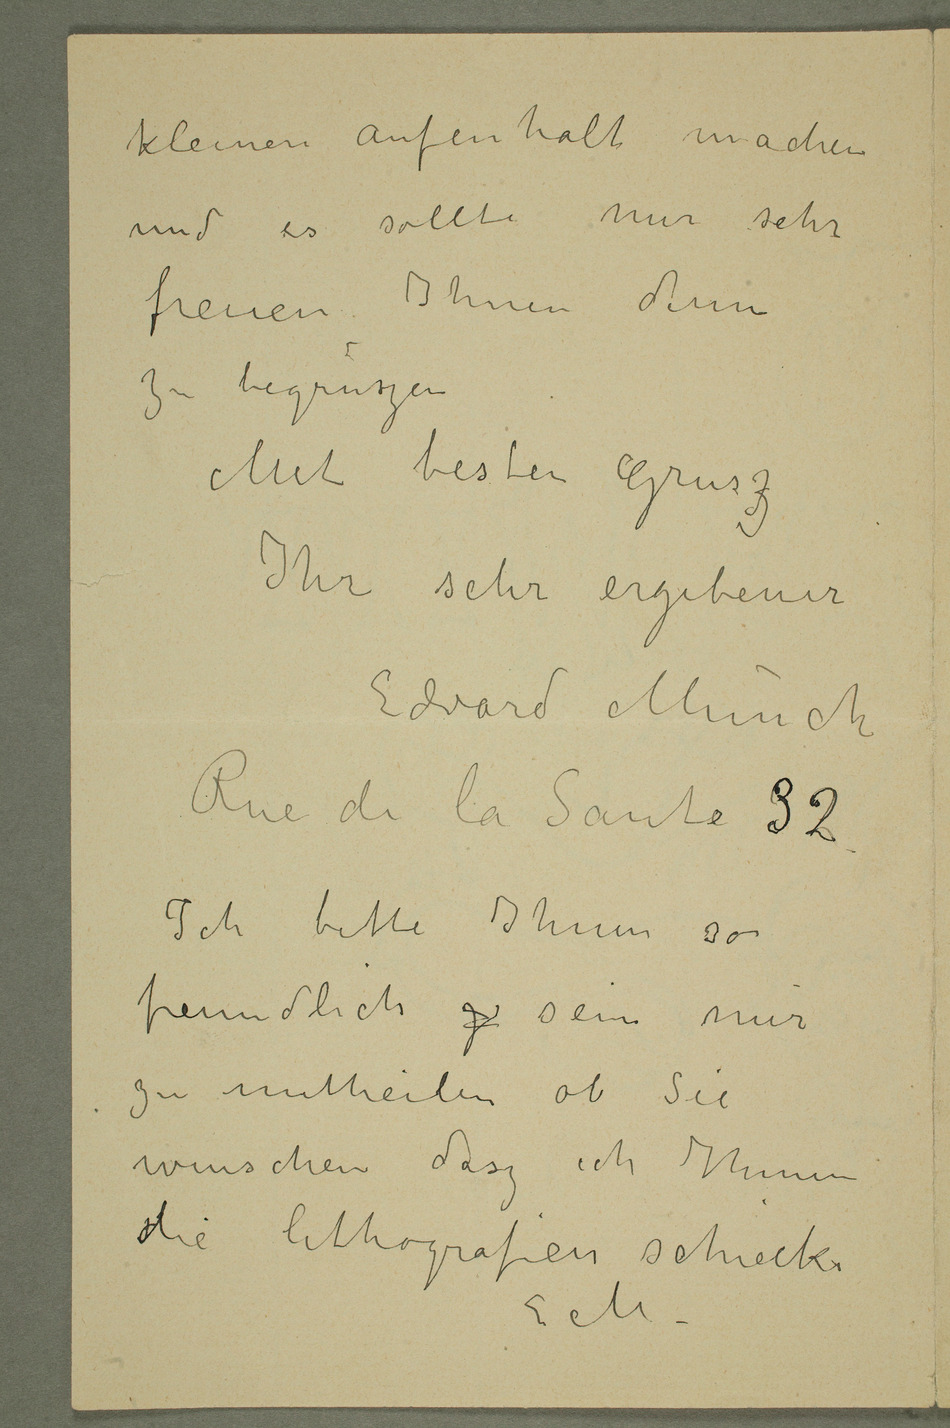 kleinen aufenhalt machen
und es sollte mir sehr
freuen Ihnen denn
zu begrüszen
Mit besten Grusz
Ihr sehr ergebener
Edvard Munch
Rue de la Sante 32
Ich bitte Ihnen so
freundlich sein mir
zu mittheilen ob Sie
wunschen dasz ich Ihnen
die lithografien schicke
E M.